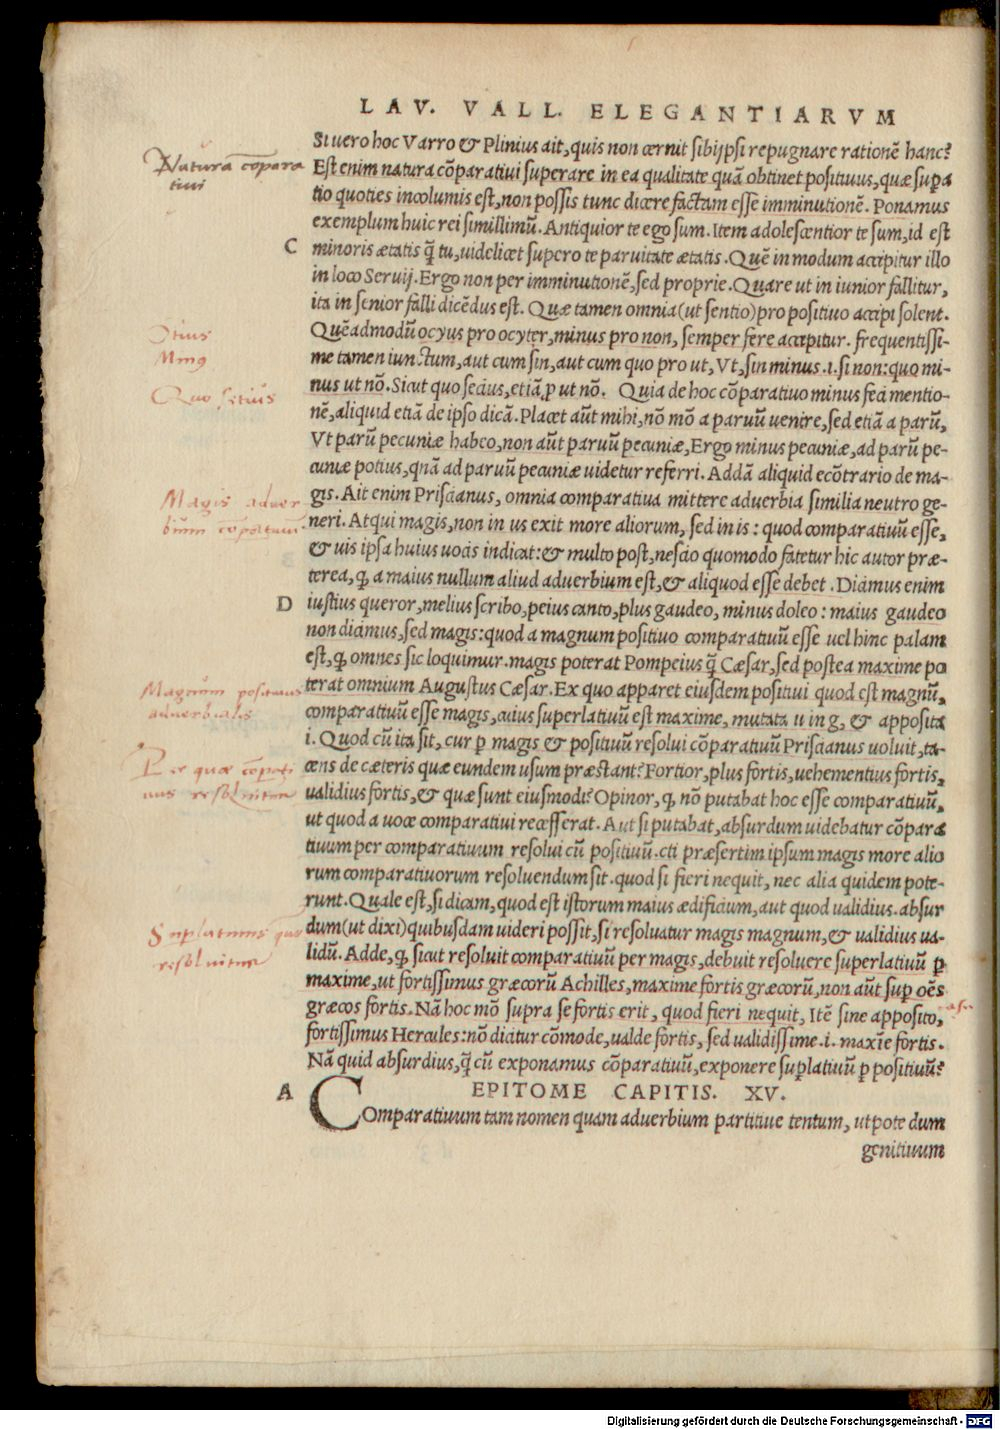 LAV. VALL. ELEGANTIARVM
Si uero hoc Varro & Plinius ait, quis non cernit sibijpsi repugnare rationē hanc?
Est enim natura cōparatiui superare in ea qualitate quā obtinet positiuus, quæ supa
tio quoties incolumis est, non possis tunc dicere factam esse imminutionē. Ponamus
exemplum huic rei simillimū. Antiquior te ego sum. Item adolescentior te sum, id est
C minoris ætatis q̃ tu, uidelicet supero te paruitate ætatis. Quē in modum accipitur illo
in loco Seruij. Ergo non per imminutionē, sed proprie. Quare ut in iunior fallitur,
ita in senior falli dicēdus est. Quæ tamen omnia (ut sentio) pro positiuo accipi solent.
Quēadmodū ocyus pro ocyter, minus pro non, semper fere accipitur. frequentissi-
me tamen iunctum, aut cum sin, aut cum quo pro ut, Vt, sin minus .i. si non: quo mi-
nus ut nō. Sicut quo secius, etiā ꝓ ut nō. Quia de hoc cōparatiuo minus feci mentio-
nē, aliquid etiā de ipso dicā. Placet aūt mihi, nō mō a paruū uenire, sed etiā a parū,
Vt parū pecuniæ habeo, non aūt paruū pecuniæ, Ergo minus pecuniæ, ad parū pe-
cuniæ potius, quā ad paruū pecuniæ uidetur referri. Addā aliquid ecōtrario de ma-
gis. Ait enim Priscianus, omnia comparatiua mittere aduerbia similia neutro ge-
neri. Atqui magis, non in us exit more aliorum, sed in is: quod comparatiuū esse,
& uis ipsa huius uocis indicat: & multo post, nescio quomodo fatetur hic autor præ-
terea, ꝙ a maius nullum aliud aduerbium est, & aliquod esse debet. Dicimus enim
D iustius queror, melius scribo, peius canto, plus gaudeo, minus doleo: maius gaudeo
non dicimus, sed magis: quod a magnum positiuo comparatiuū esse uel hinc palam
est, ꝙ omnes sic loquimur. magis poterat Pompeius q̃ Cæsar, sed postea maxime po
terat omnium Augustus Cæsar. Ex quo apparet eiusdem positiui quod est magnū,
comparatiuū esse magis, cuius superlatiuū est maxime, mutata u in g, & apposita
i. Quod cū ita sit, cur ꝑ magis & positiuū resolui cōparatiuū Priscianus uoluit, ta-
cens de cæteris quæ eundem usum præstant? Fortior, plus fortis, uehementius fortis,
ualidius fortis, & quæ sunt eiusmodi? Opinor, ꝙ nō putabat hoc esse comparatiuū,
ut quod a uoce comparatiui recesserat. Aut si putabat, absurdum uidebatur cōpara
tiuum per comparatiuum resolui cū positiuū. cū præsertim ipsum magis more alio
rum comparatiuorum resoluendum sit. quod si fieri nequit, nec alia quidem pote-
runt. Quale est, si dicam, quod est istorum maius ædificium, aut quod ualidius. absur
dum (ut dixi) quibusdam uideri possit, si resoluatur magis magnum, & ualidius ua-
lidū. Adde, ꝙ sicut resoluit comparatiuū per magis, debuit resoluere superlatiuū ꝑ
maxime, ut fortissimus græcorū Achilles, maxime fortis græcorū, non aūt sup oēs
græcos fortis. Nā hoc mō supra se fortis erit, quod fieri nequit, Itē sine apposito,
fortissimus Hercules: nō dicitur cōmode, ualde fortis, sed ualidissime .i. maxīe fortis.
Nā quid absurdius, q̃ cū exponamus cōparatiuū, exponere suplatiuū ꝑ positiuū?
A EPITOME CAPITIS. XV.
Comparatiuum tam nomen quam aduerbium partitiue tentum, utpote dum
genitiuum
Natura compara
tiui
Minus
Quo setius
Magis aduer
bium
Magnum positiuus
aduerbialis
Per quae
resoluitur
Superlatiuus
resoluitur
Digitalisierung gefördert durch die Deutsche Forschungsgemeinschaft - DFG